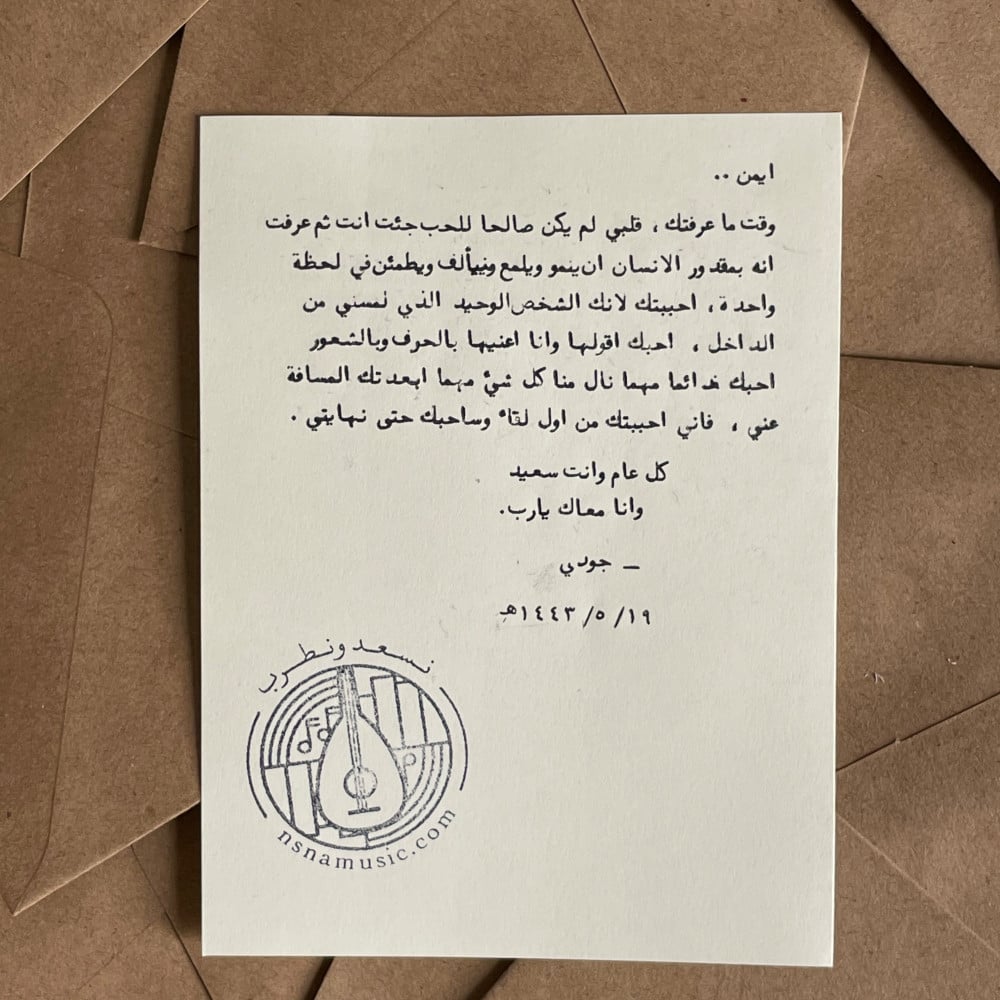 ايمن ..
وقت ما عرفتك ، قلبي لم يكن صالحا للحب جئت انت ثم عرفت
انه بمقدور الانسان ان ينمو ويلمع ويتألف ويطمئن في لحظة
واحدة ، احببتك لانك الشخص الوحيد الذي لمسني من
الداخل ، احبك اقولها وانا اعنيها بالحرف وبالشعور
احبك دائما مهما نال منا كل شيُ مهما ابعدتك المسافة
عني ، فاني احببتك من اول لقاء وساحبك حتى نهايتي .
كل عام وانت سعيد
وانا معاك يارب.
_ جودي
١٩/ ٥/ ١٤٤٣هـ
نسعد ونطرب
nsnamusic.com